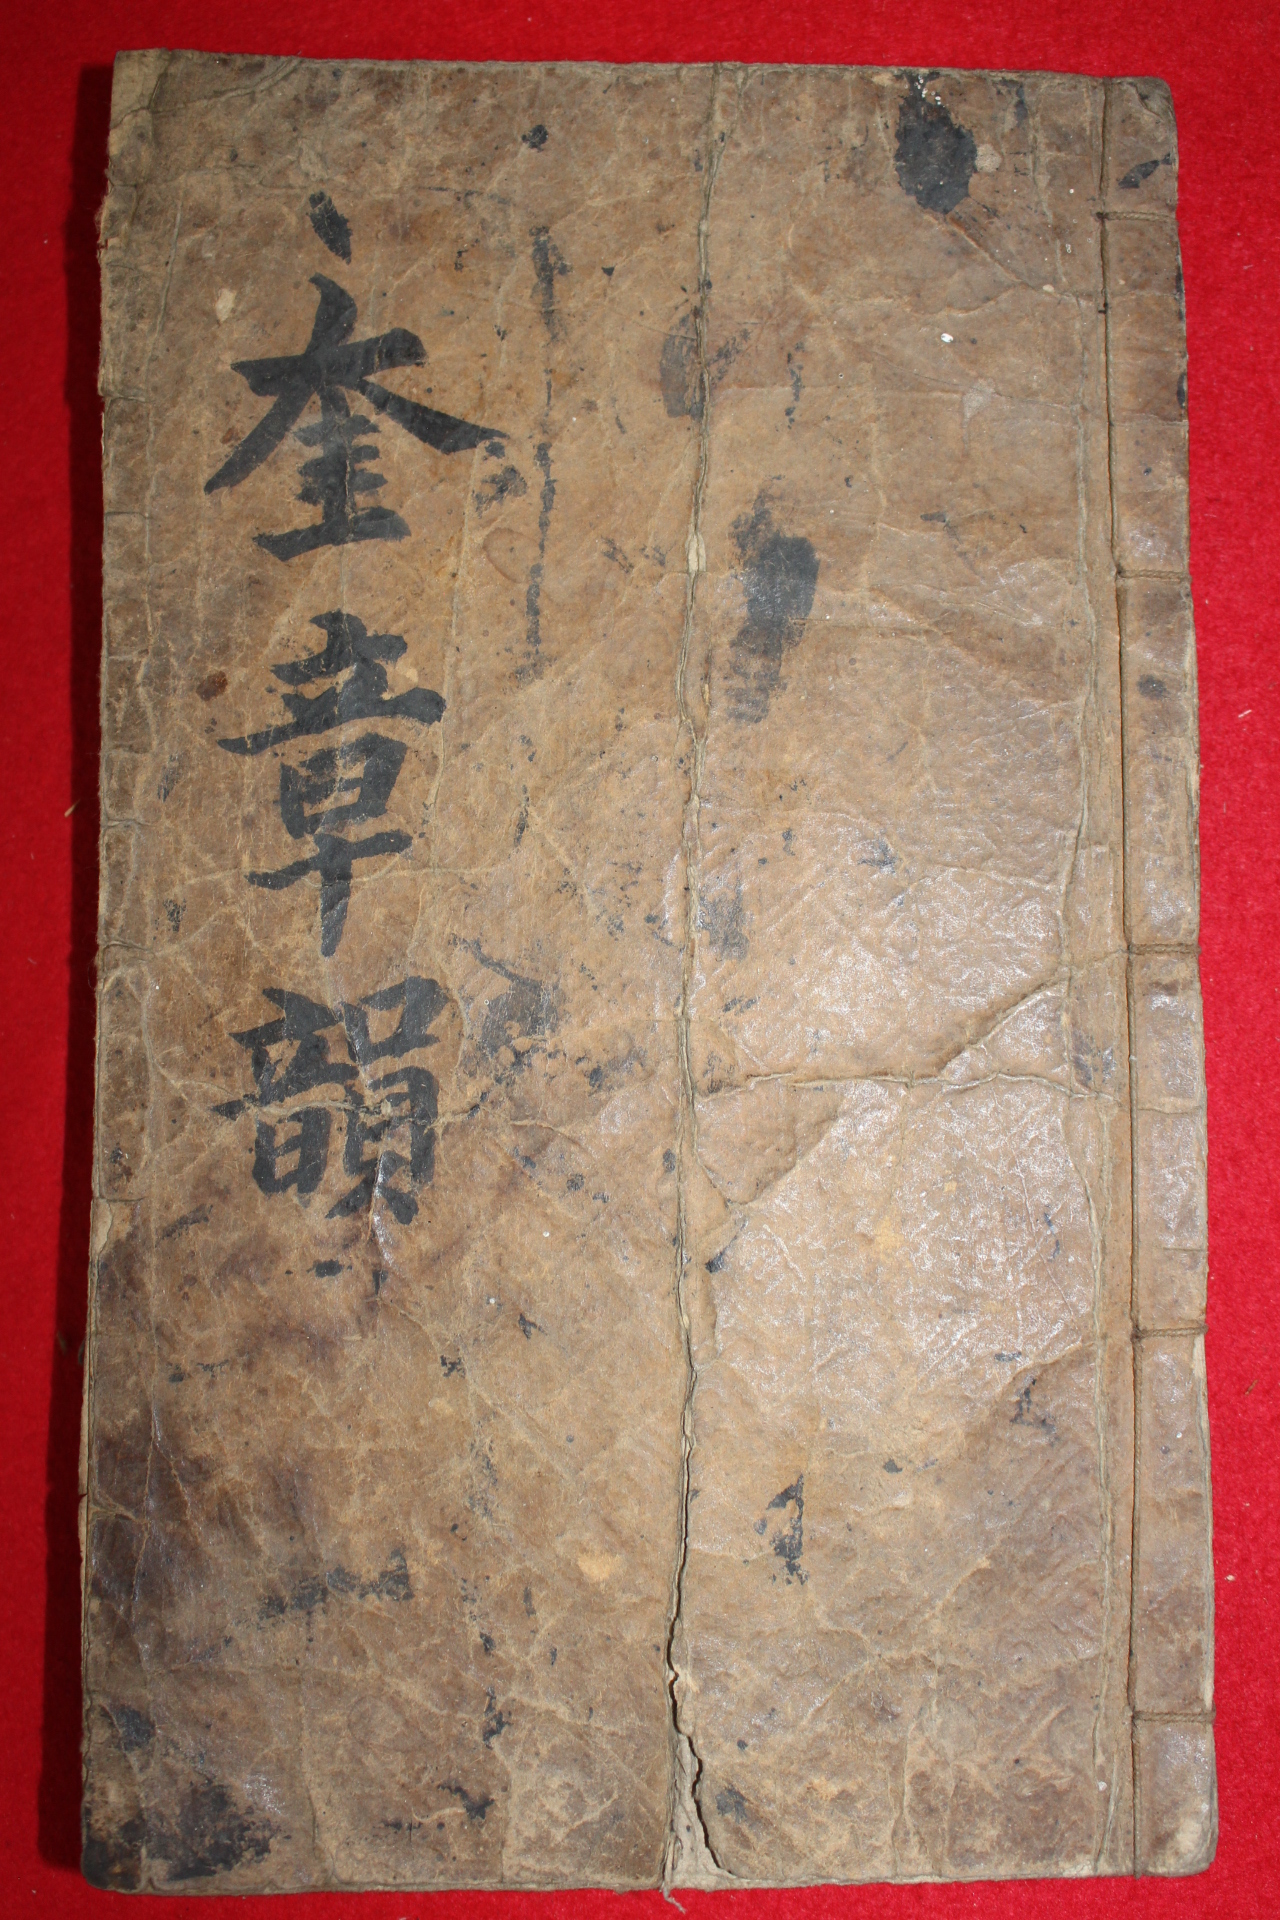 奎章韻